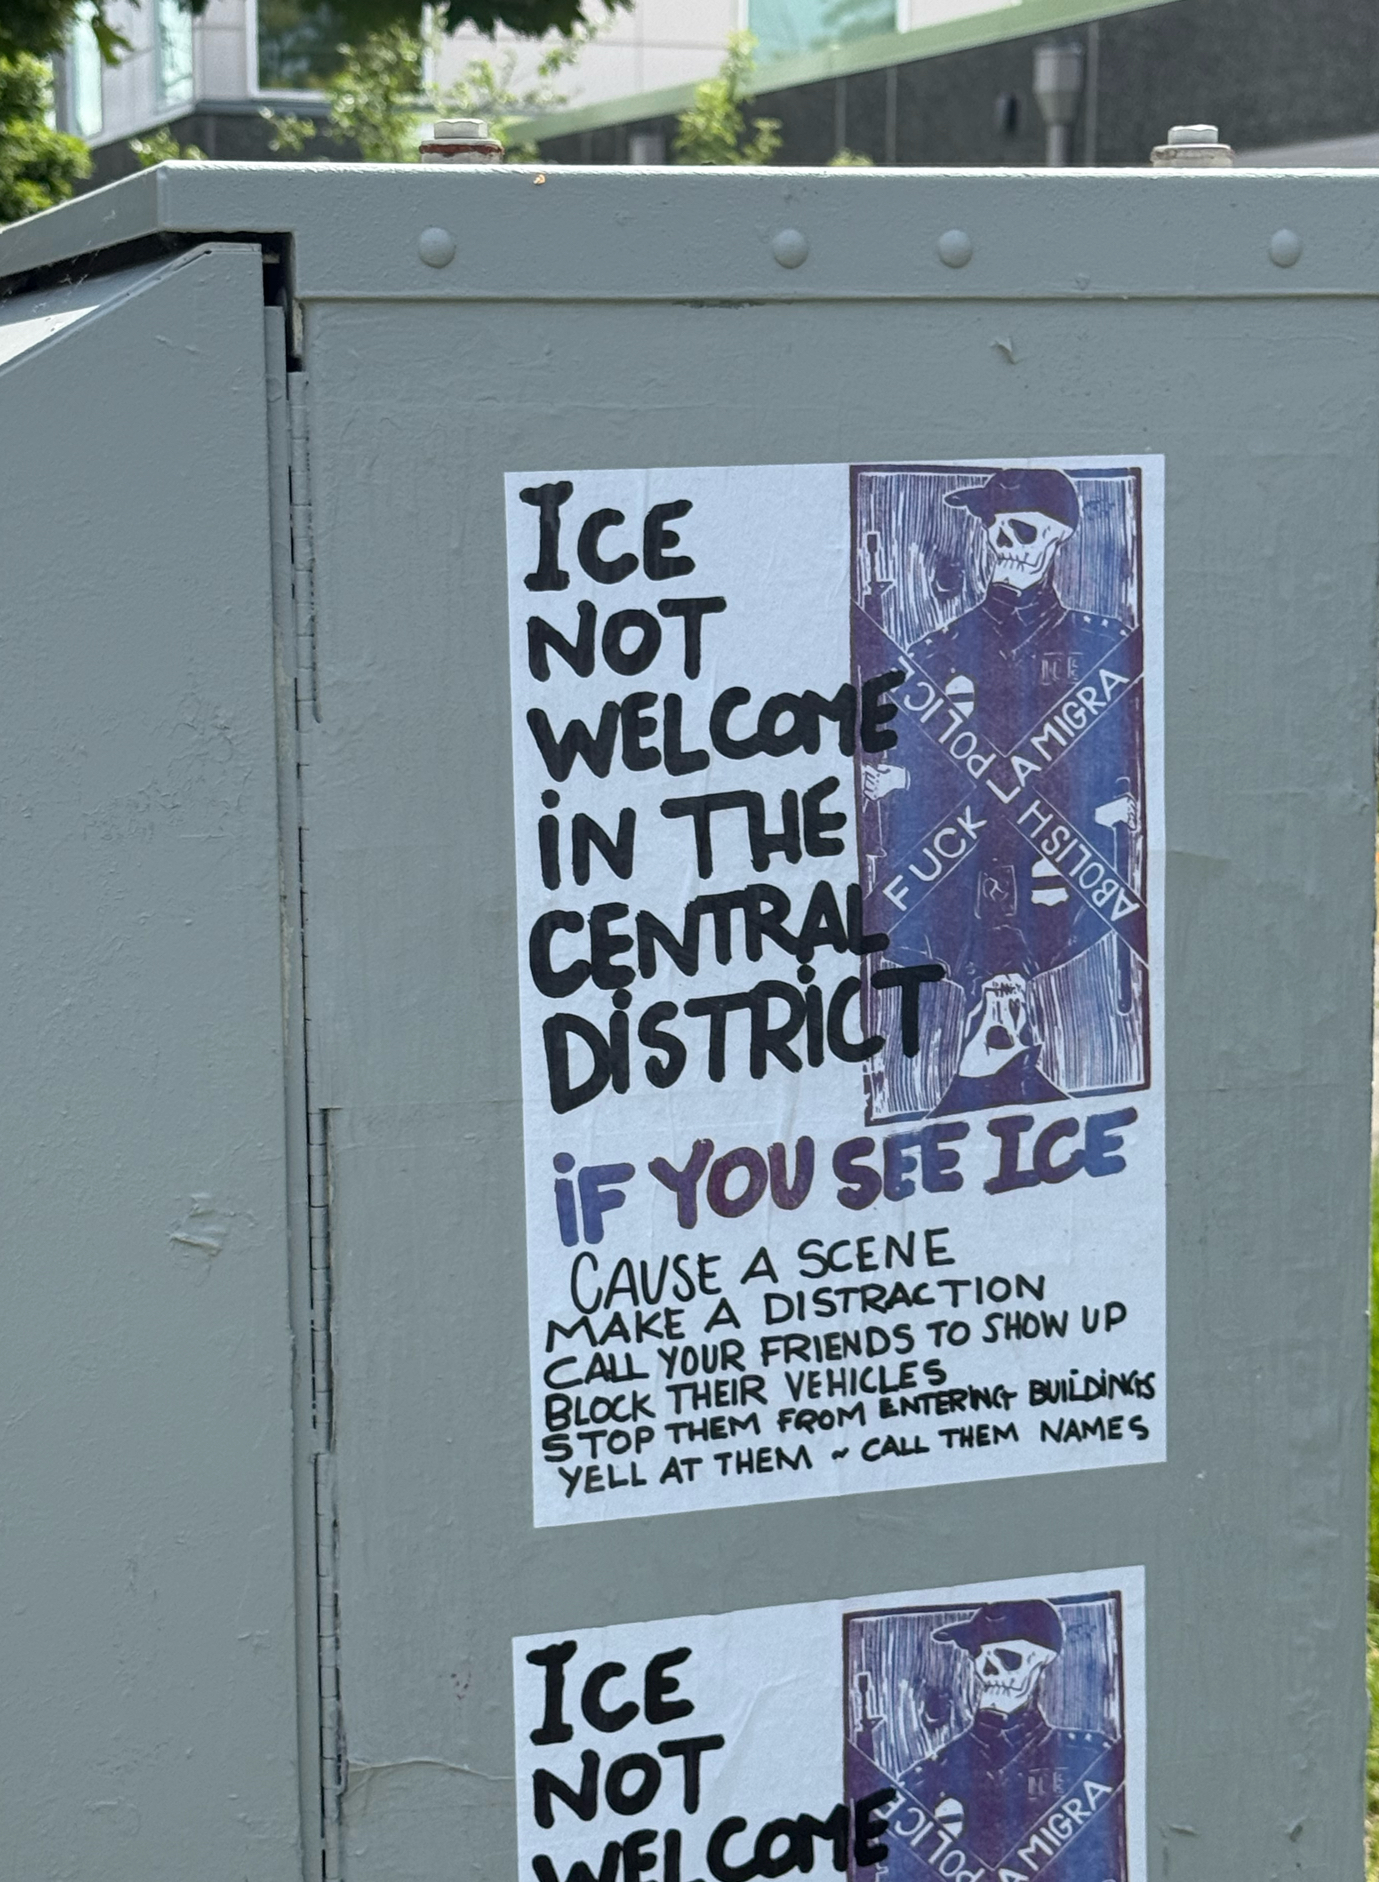 ICE
NOT
WELCOME
iN THE
CENTRAL
DiSTRiCT
ICE
POLICE
LA MIGRA
FUCK
ABOLISH
iF YOU SEE ICE
CAUSE A SCENE
MAKE A DISTRACTION
CALL YOUR FRIENDS TO SHOW UP
BLOCK THEIR VEHICLES
STOP THEM FROM ENTERING BUiLDiNGS
YELL AT THEM ~ CALL THEM NAMES
ICE
NOT
WELCOME
ICE
POLICE
LA MIGRA